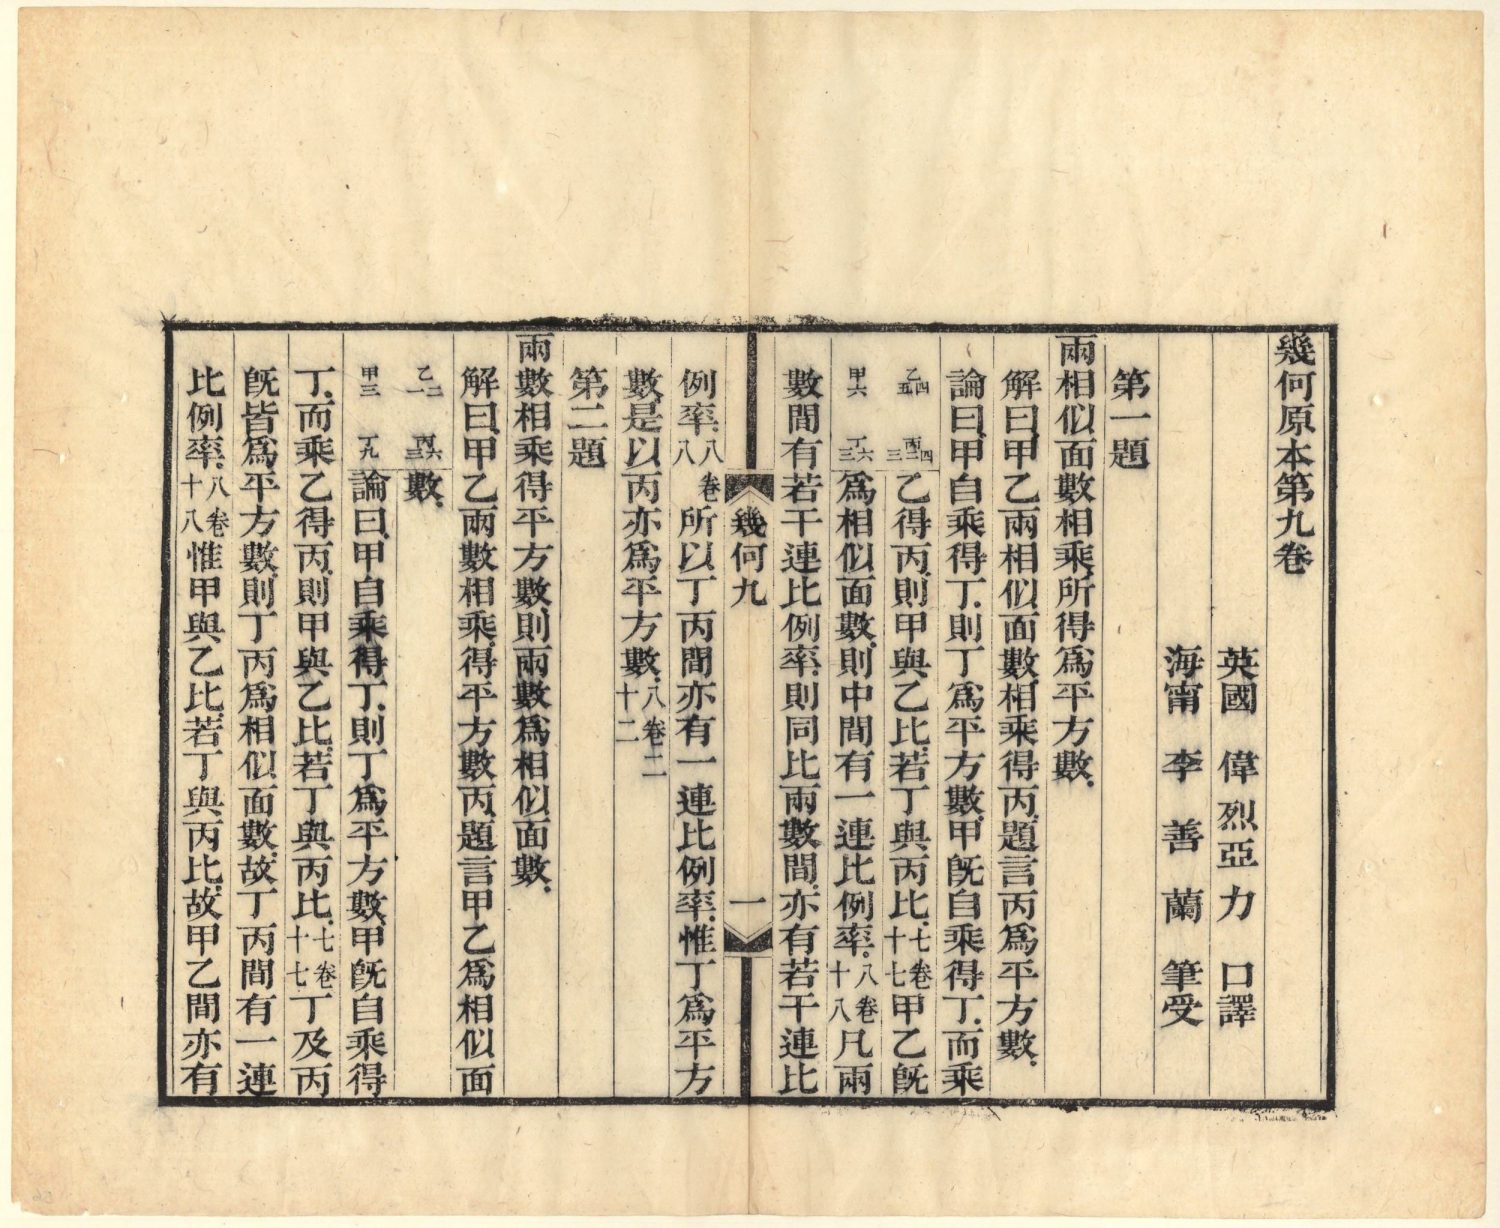 幾何原本第九卷
英國 偉烈亞力 口譯
海甯 李善蘭 筆受
第一題
兩相似面數相乘所得爲平方數.
解曰.甲乙兩相似面數.相乘得丙.題言丙爲平方數.
論曰.甲自乘得丁.則丁爲平方數.甲旣自乘得丁.而乘
乙得丙.則甲與乙比.若丁與丙比.七卷十七甲乙旣
爲相似面數.則中間有一連比例率.八卷十八凡兩
數間有若干連比例率.則同比兩數間.亦有若干連比
幾何九
一
例率.八卷八所以丁丙間亦有一連比例率.惟丁爲平方
數.是以丙亦爲平方數.八卷二十二
第二題
兩數相乘得平方數.則兩數爲相似面數.
解曰.甲乙兩數相乘.得平方數丙.題言甲乙爲相似面
數.
論曰.甲自乘得丁.則丁爲平方數.甲旣自乘得
丁.而乘乙得丙.則甲與乙比.若丁與丙比.七卷十七丁及丙
旣皆爲平方數.則丁丙爲相似面數.故丁丙間有一連
比例率.八卷十八惟甲與乙比.若丁與丙比.故甲乙間亦有